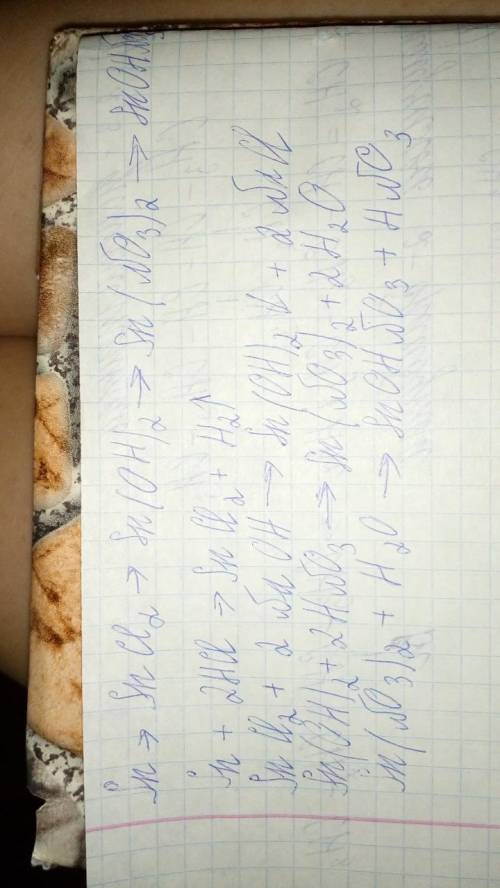 Sn → SnCl₂ → Sn(OH)₂ → Sn(NO₃)₂ → SnOHNO₃
Sn + 2HCl → SnCl₂ + H₂↑
SnCl₂ + 2NaOH → Sn(OH)₂↓ + 2NaCl
Sn(OH)₂ + 2HNO₃ → Sn(NO₃)₂ + 2H₂O
Sn(NO₃)₂ + H₂O → SnOHNO₃ + HNO₃